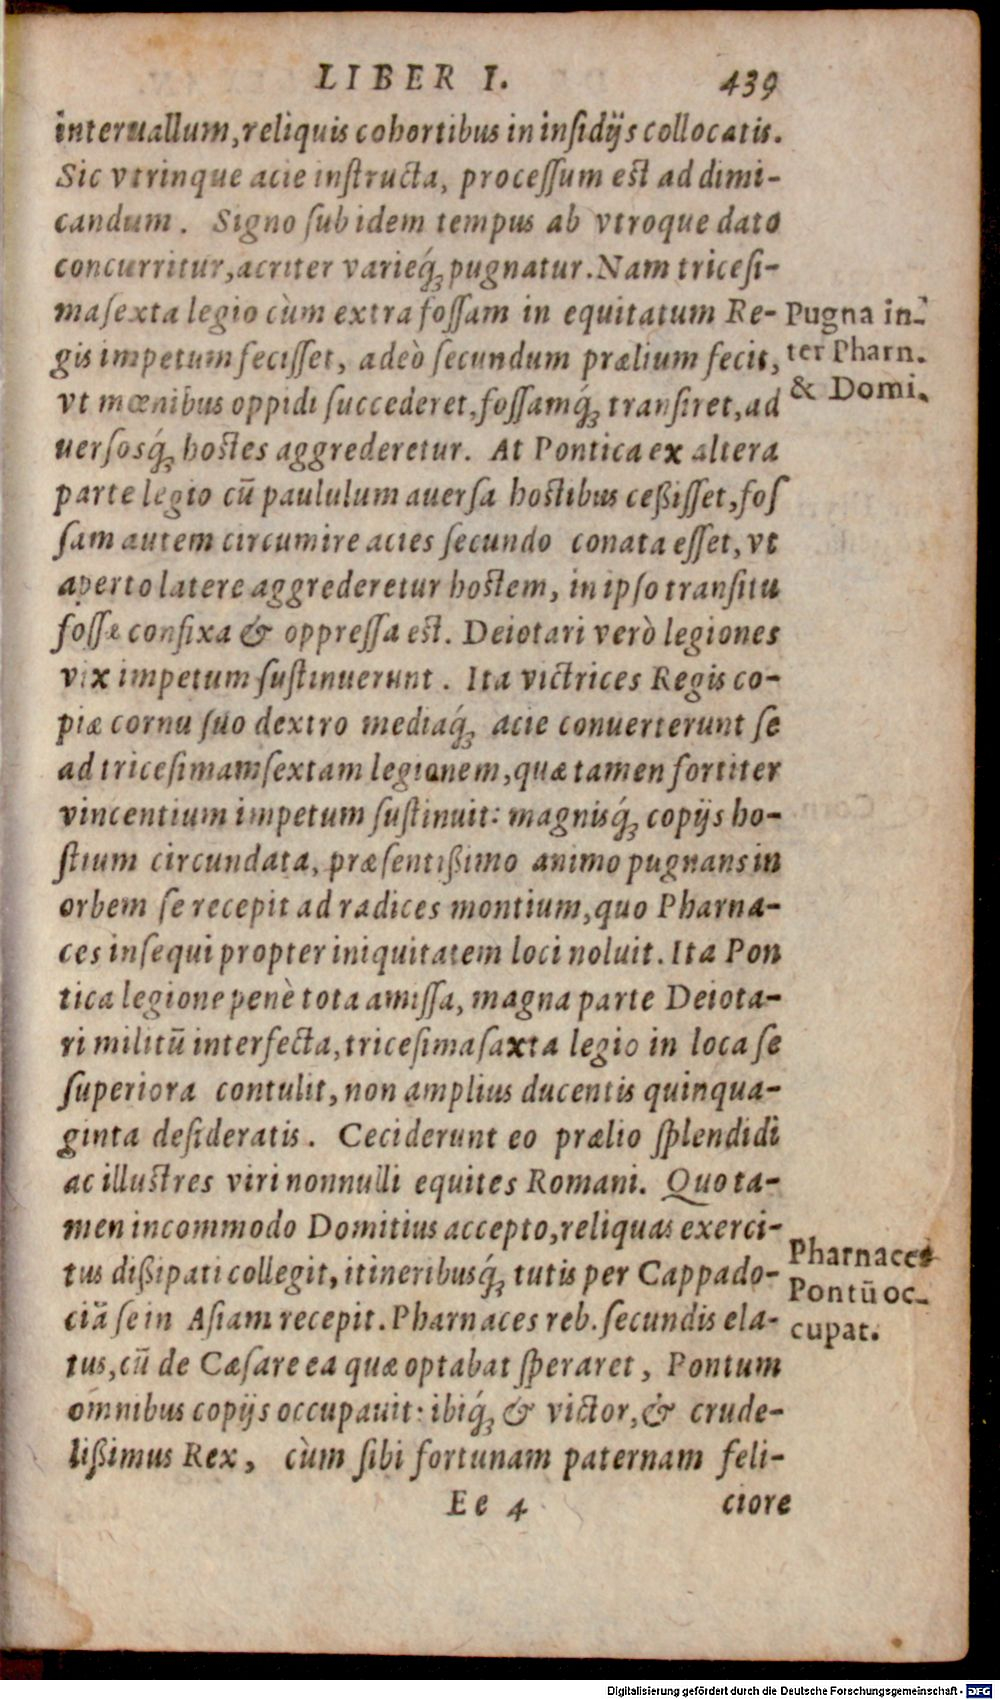 LIBER I. 439
interuallum, reliquis cohortibus in inſidijs collocatis.
Sic vtrinque acie inſtructa, proceſſum eſt ad dimi-
candum. Signo ſub idem tempus ab vtroque dato
concurritur, acriter varieq́ꝫ pugnatur. Nam triceſi-
maſexta legio cùm extra foſſam in equitatum Re-
gis impetum feciſſet, adeò ſecundum prælium fecit,
vt mœnibus oppidi ſuccederet, foſſamq́ꝫ tranſiret, ad
uerſosq́ꝫ hoſtes aggrederetur. At Pontica ex altera
parte legio cū paululum auerſa hoſtibus ceßiſſet, foſ
ſam autem circumire acies ſecundo conata eſſet, vt
aperto latere aggrederetur hoſtem, in ipſo tranſitu
foſſæ confixa & oppreſſa eſt. Deiotari verò legiones
vix impetum ſuſtinuerunt. Ita victrices Regis co-
piæ cornu ſuo dextro mediaq́ꝫ acie conuerterunt ſe
ad triceſimamſextam legionem, quæ tamen fortiter
vincentium impetum ſuſtinuit: magnisq́ꝫ copijs ho-
ſtium circundata, præſentißimo animo pugnans in
orbem ſe recepit ad radices montium, quo Pharna-
ces inſequi propter iniquitatem loci noluit. Ita Pon
tica legione penè tota amiſſa, magna parte Deiota-
ri militū interfecta, triceſimaſaxta legio in loca ſe
ſuperiora contulit, non amplius ducentis quinqua-
ginta deſideratis. Ceciderunt eo prælio ſplendidi
ac illuſtres viri nonnulli equites Romani. Quo ta-
men incommodo Domitius accepto, reliquas exerci-
tus dißipati collegit, itineribusq́ꝫ tutis per Cappado-
ciā ſe in Aſiam recepit. Pharnaces reb. ſecundis ela-
tus, cū de Cæſare ea quæ optabat ſperaret, Pontum
omnibus copijs occupauit: ibiq́ꝫ & victor, & crude-
lißimus Rex, cùm ſibi fortunam paternam feli-
Ee 4 ciore
Pugna in-
ter Pharn.
& Domi.
Pharnaces
Pontū oc-
cupat.
Digitalisierung gefördert durch die Deutsche Forschungsgemeinschaft - DFG